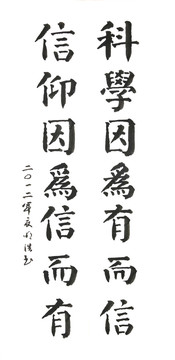 科學因爲有而信
信仰因爲信而有
二〇一二年夏